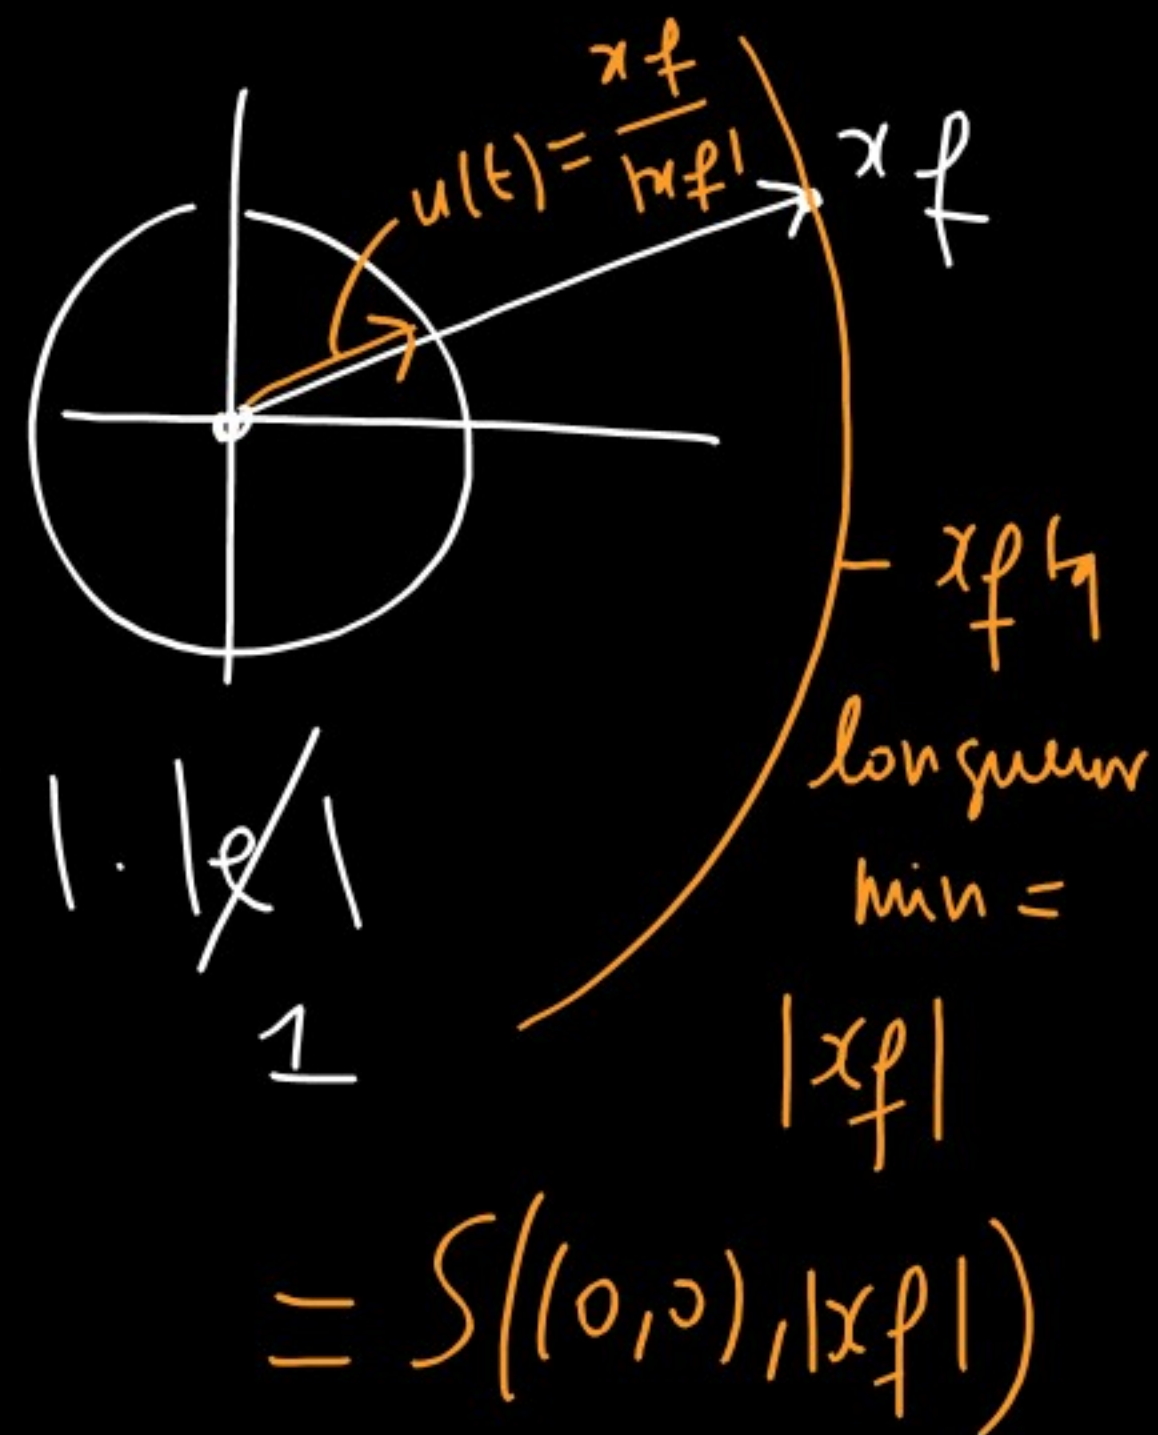 u(t) = xf / |xf|
xf
xf tq
longueur
min =
|xf|
|.|e|
1
= S((0,0),|xf|)